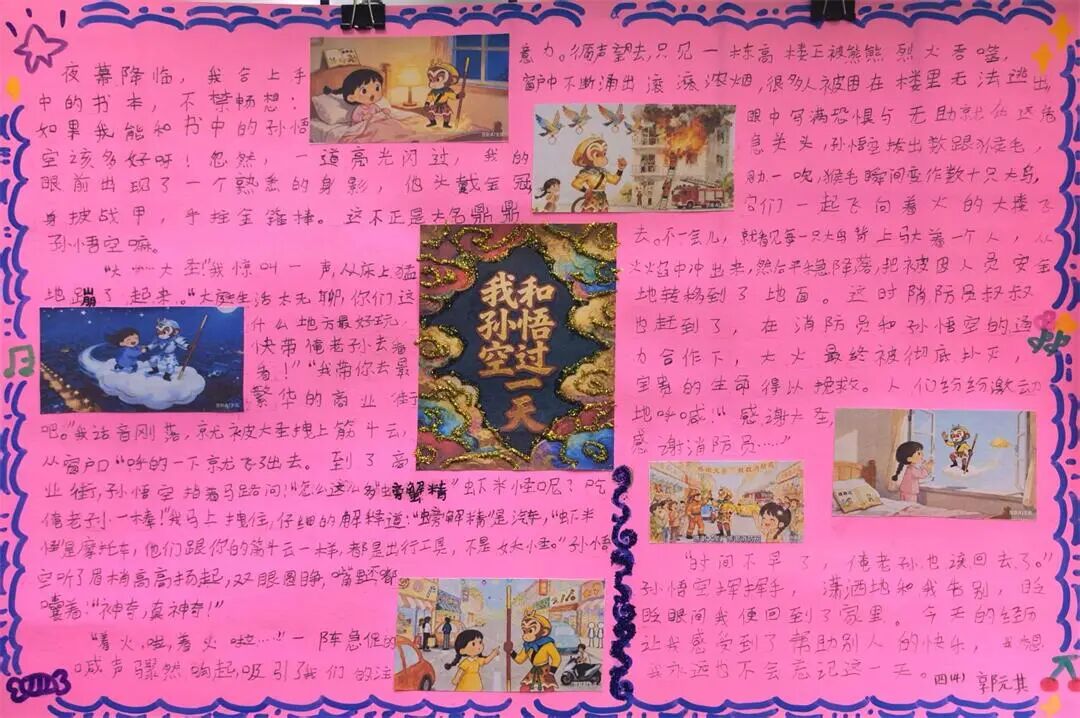 夜幕降临，我合上手
中的书本，不禁畅想：
如果我能和书中的孙悟
空该多好呀！忽然，一道亮光闪过，我的
眼前出现了一个熟悉的身影，他头戴金冠
身披战甲，手拴金箍棒。这不正是大名鼎鼎
孙悟空嘛。
“大……大圣！”我惊叫一声，从床上猛
地蹦了起来。“天庭生活太无聊，你们这
什么地方最好玩，
快带俺老孙去看
看！”“我带你去最
繁华的商业街
吧。”我话音刚落，就被大圣拽上筋斗云，
从窗户口“呼的一下就飞了出去。到了商
业街，孙悟空指着马路问：“怎么这么多“螃蟹精”虾米怪呢？吃
俺老孙一棒！”我马上拽住，仔细的解释道：“螃解精”是汽车，“虾米
怪”是摩托车，他们跟你的筋斗云一样，都是出行工具，不是妖怪。”孙悟
空听了眉梢高高扬起，双眼圆睁，嘴巴还都
囔着：“神奇，真神奇！”
“着火啦，着火啦……”一阵急促的
喊声骤然响起，吸引了我们的注
我和
孙悟
空过
一天
意力。循声望去，只见一栋高楼正被熊熊烈火吞噬，
窗户中不断涌出滚滚浓烟，很多人被困在楼里无法逃出，
眼中写满恐惧与无助就在这危
急关头，孙悟空拔出数跟猴毛，
一吹，猴毛瞬间变作数十只大鸟，
它们一起飞向着火的大楼飞
去。不一会儿，就看见每一只大鸟背上马大着一个人，从
火焰中冲出来，然后平稳降落，把被困人员安全
地转移到了地面。这时消防员叔叔
也赶到了，在消防员和孙悟空的通
力合作下，大火最终被彻底扑灭，
宝贵的生命得以挽救。人们纷纷激动
地呼喊：“感谢大圣，
感谢消防员……”
“时间不早了，俺老孙也该回去了。”
孙悟空挥挥手，潇洒地和我告别，眨
眨眼间我便回到了家里。今天的经历
让我感受到了帮助别人的快乐，我想
我永远也不会忘记这一天。
四(4) 郭元其